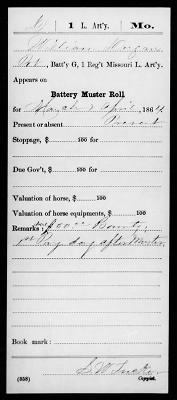 1 L. Art'y. Mo.
William Morgan
Pvt, Batt'y G, 1 Reg't Missouri L. Art'y.
Appears on
Battery Muster Roll
for March & April, 1864
Present or absent Present
Stoppage, $ 100 for
Due Gov't, $ 100 for
Valuation of horse, $ 100
Valuation of horse equipments, $ 100
Remarks: $100.00 Bounty
1st Pay day after Muster
Book mark:
(358) Copyist.